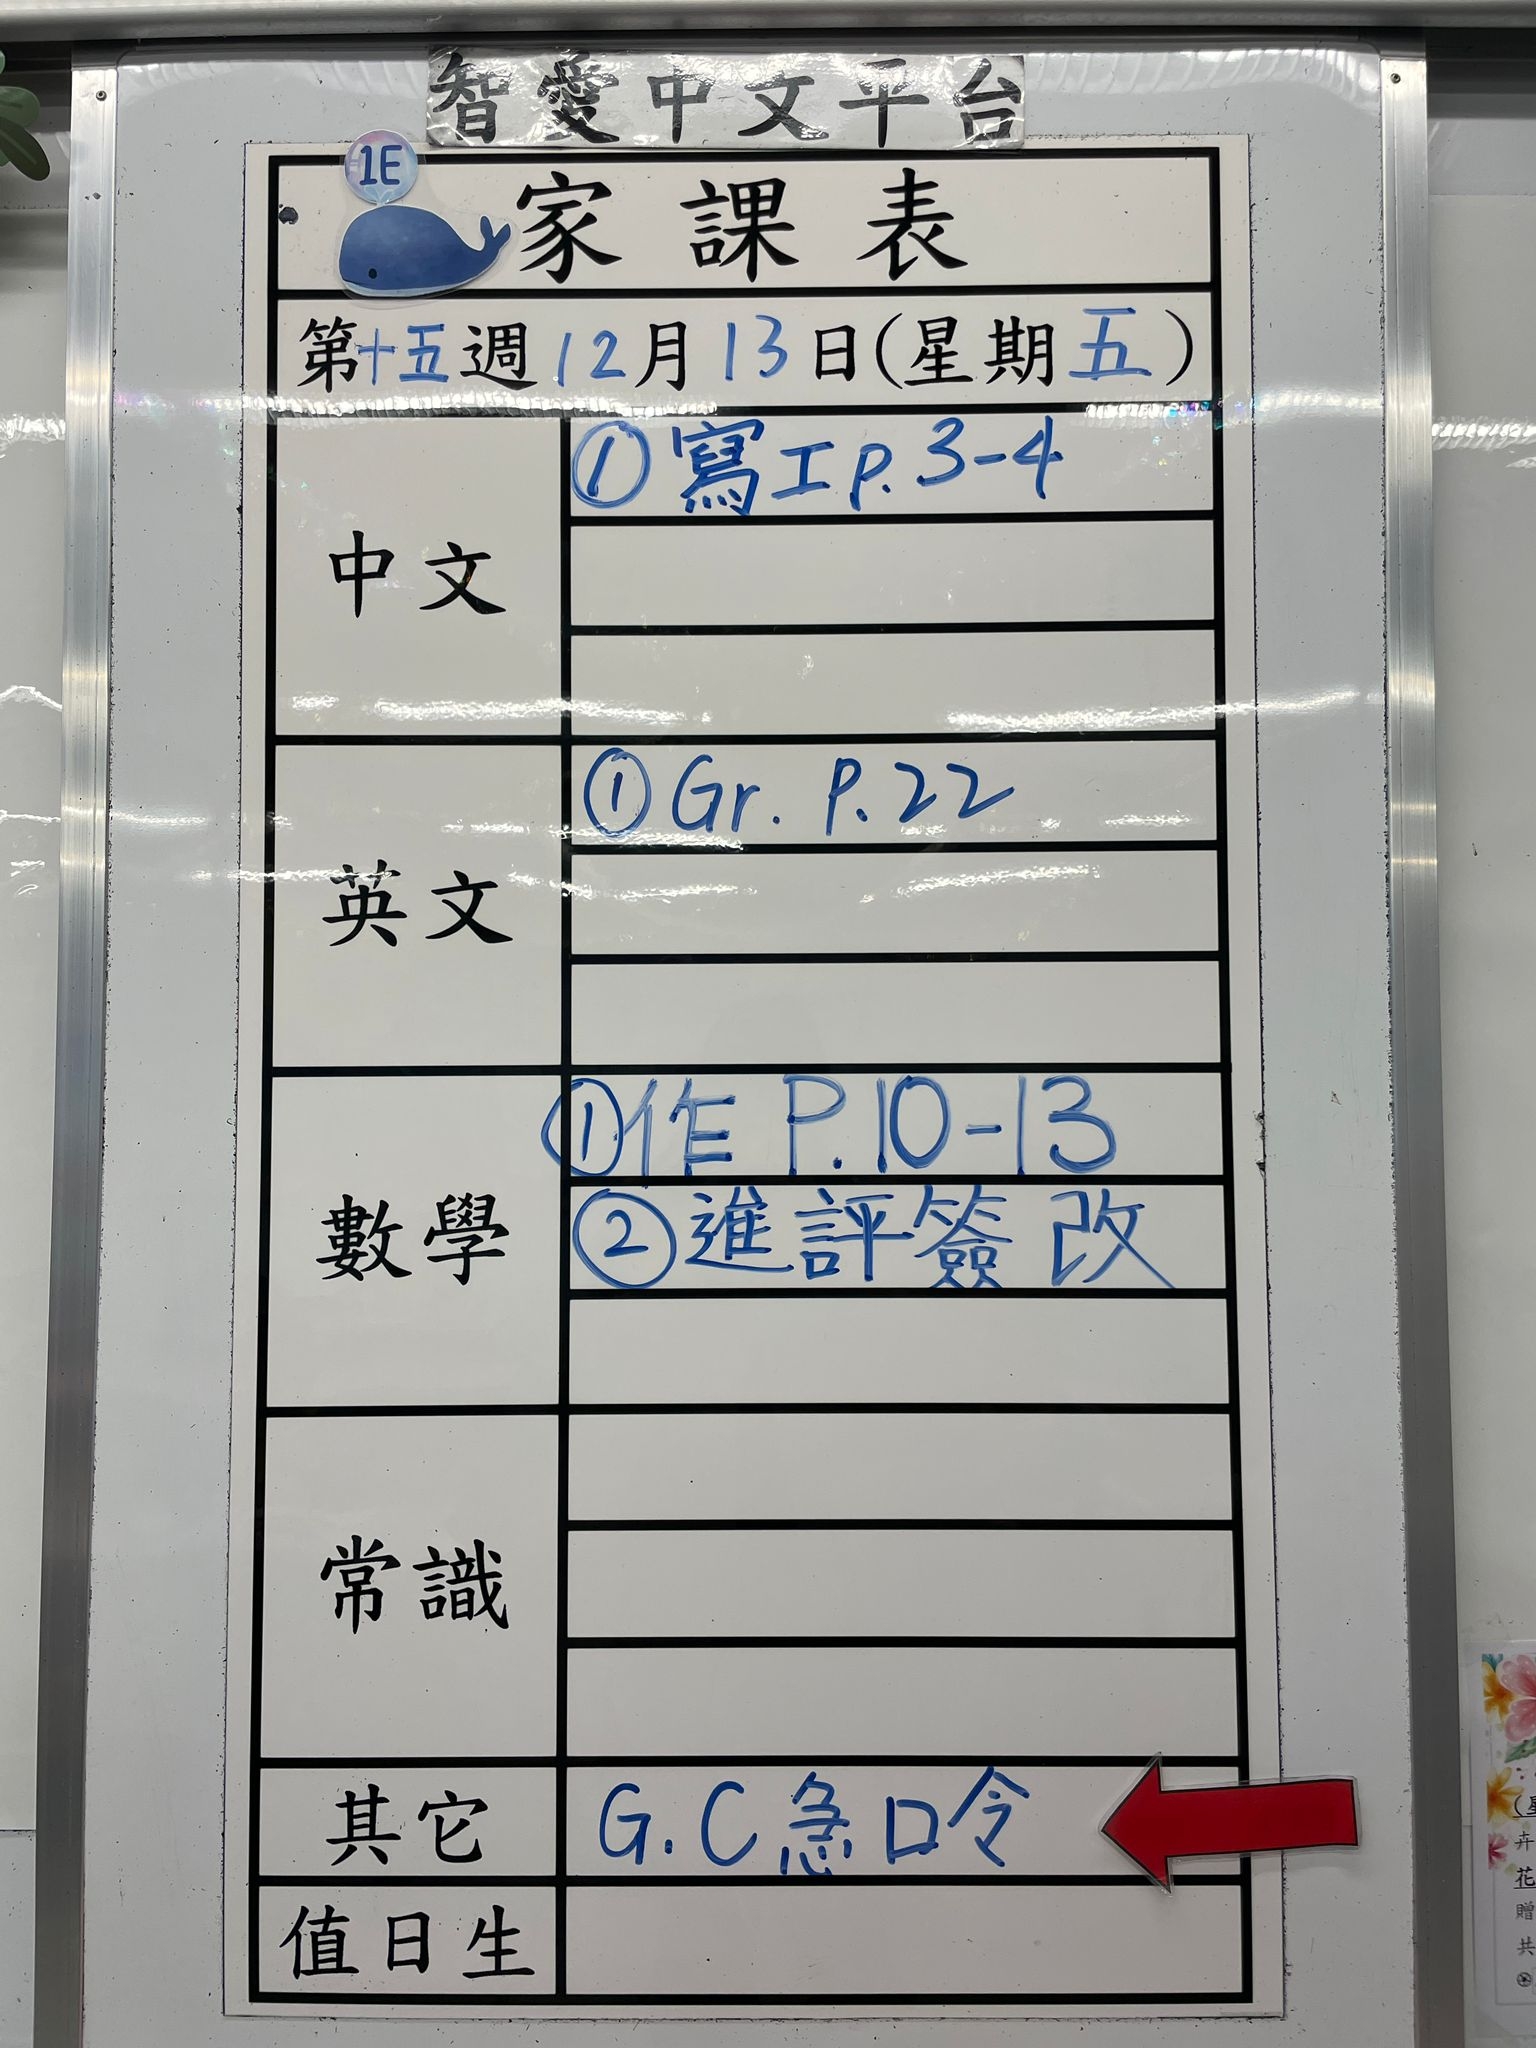 智愛中文平台
1E
家課表
第十五週12月13日(星期五)
中文
①寫工p.3-4
英文
①Gr. P.22
數學
①作 P.10-13
②進評簽改
常識
其它
G.C急口令
值日生
花
贈
共